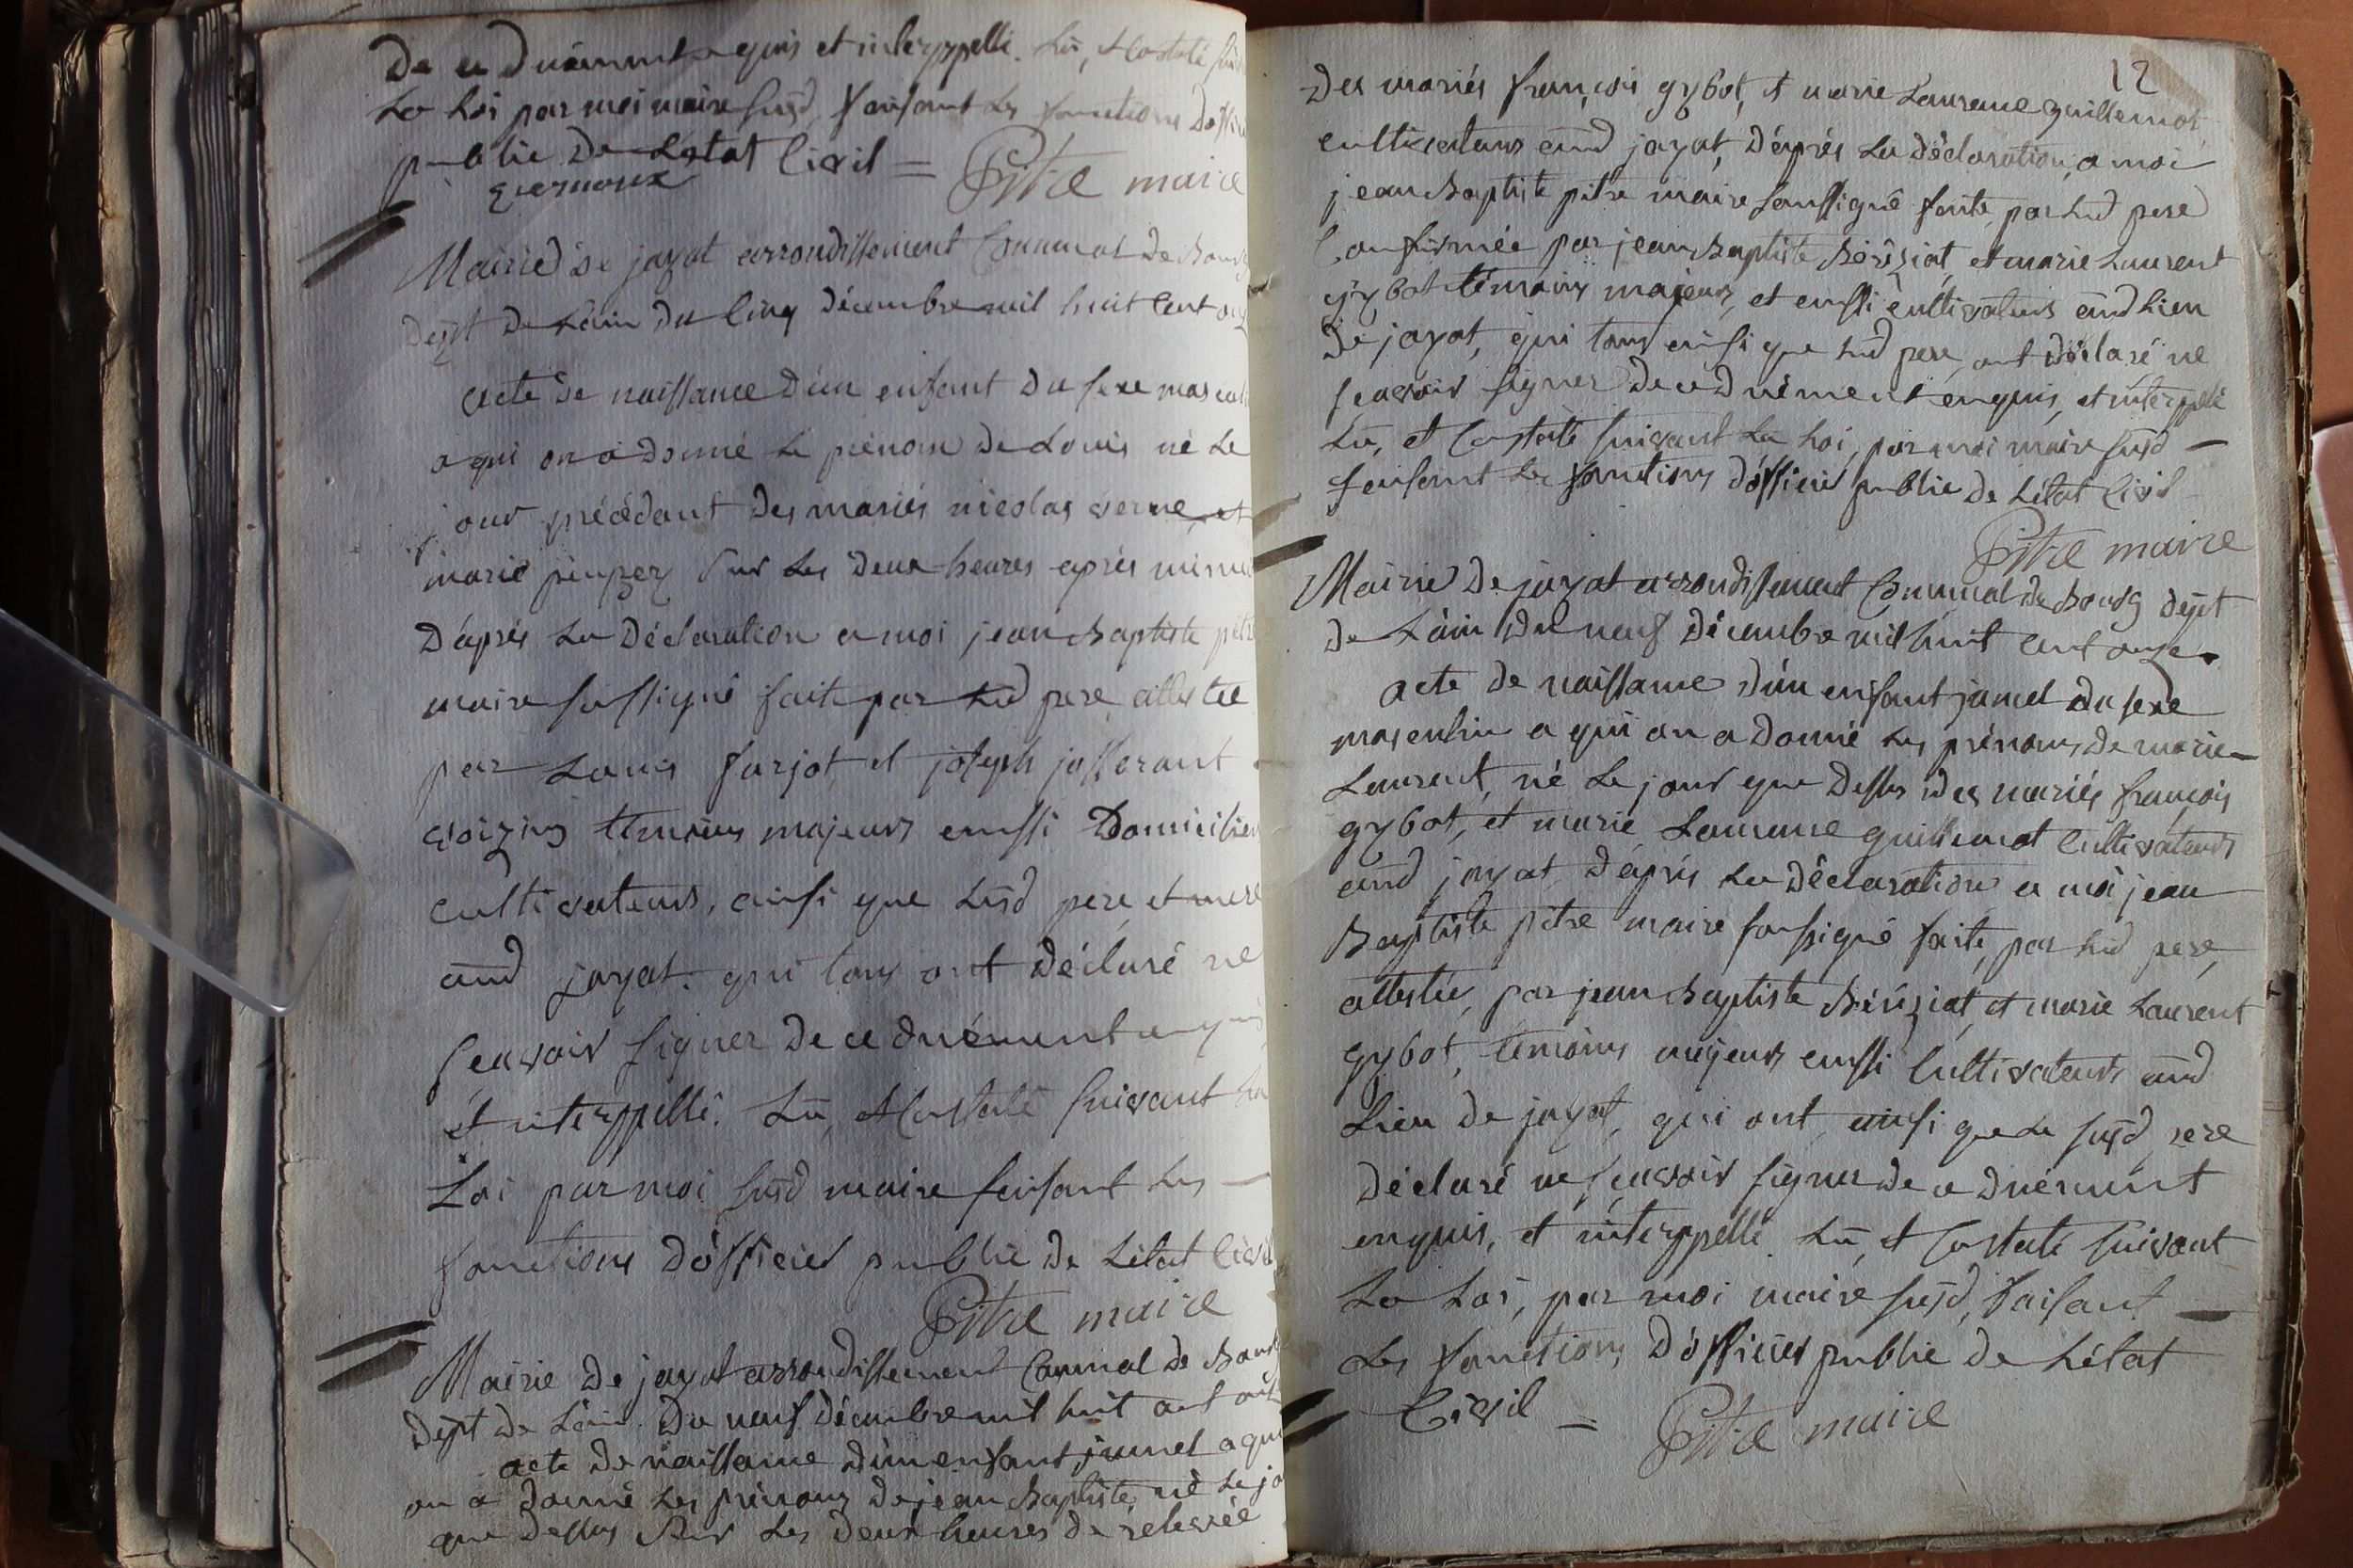 De ce Duëment enquis et interppellé. Lu, et Costaté
La Loi par moi maire susd, faisant Les fonctions
public De L'état Civil =
guernoux
Pitre maire
Mairie De jayat arrondissement Communal De Bourg
Dept De L'ain Du Cinq Décembre mil huit Cent
acte De naissance D'un enfant Du sexe
a qui on a Donné Le prénom De Louis né Le
jour précédant Des mariés nicolas verne, et
marie Sur Les Deux heures après
D'après La Déclaration a moi jean Baptiste
maire sussigné faite par Lud pere, attestée
par Louis farjot, et joseph josserant
voizins témoins majeurs aussi Domiciliés
cultivateurs, ainsi que Lusd pere, et mere
aud jayat. qui tous ont Déclaré ne
scavoir signer De ce Duëment enquis
et interppellé. Lu, et Costaté suivant La
Loi par moi susd maire faisant Les —
fonctions D'officier public De L'état Civil
Pitre maire
Mairie De jayat arrondissement Communal De Bourg
Dept De L'ain. Du neuf Décembre mil huit cent
acte De naissance D'un enfant jumel a qui
on a Donné Les prénoms De jean Baptiste, né Le
que Dessus Sur Les Deux heures De relevée
12
Des mariés françois gybot, et marie Laurence guillemot,
cultivateurs aud jayat, D'après La Déclaration, a moi
jean Baptiste pitre maire soussigné faite, par Lud pere
Confirmée par jean Baptiste Béréziat, et marie Laurent
gybot témoins majeurs, et aussi cultivateurs aud Lieu
De jayat, qui tous ainsi que Lud pere, ont Déclaré ne
scavoir signer De ce Duëment enquis, et interppellé
Lu, et Costaté suivant La Loi, par moi maire susd —
faisant Les fonctions D'officier public De L'état Civil
Pitre maire
Mairie De jayat arrondissement Communal De Bourg Dept
De L'ain, Du neuf Décembre mil huit Cent onze.
acte De naissance D'un enfant jumel Du sexe
masculin a qui on a Donné Les prénoms, De marie —
Laurent, né Le jour que Dessus Des mariés françois
gybot, et marie Laurence guillemot Cultivateurs
aud jayat D'après La Déclaration a moi jean
Baptiste pitre maire soussigné faite, par Lud pere,
attestée, par jean Baptiste Béréziat, et marie Laurent
gybot, témoins majeurs aussi Cultivateurs aud
Lieu De jayat, qui ont, ainsi que Le susd pere
Déclaré ne scavoir signer De ce Duëment
enquis, et interppellé. Lu, et Costaté suivant
La Loi, par moi maire susd, faisant —
Les fonctions D'officier public De L'état
Civil =
Pitre maire